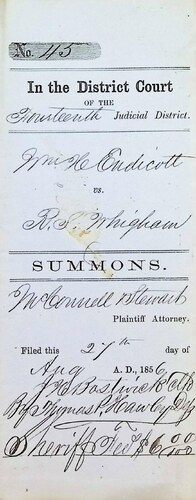 No. 45
In the District Court
OF THE
Fourteenth Judicial District.
Wm H Endicott
vs.
R. S. Whigham
SUMMONS.
McConnell & Stewart
Plaintiff Attorney.
Filed this 27th day of
Aug A. D., 1856,
J E Bostwick Clk
By Thomas H Hawley Dpy
Sheriff Fees $6.00